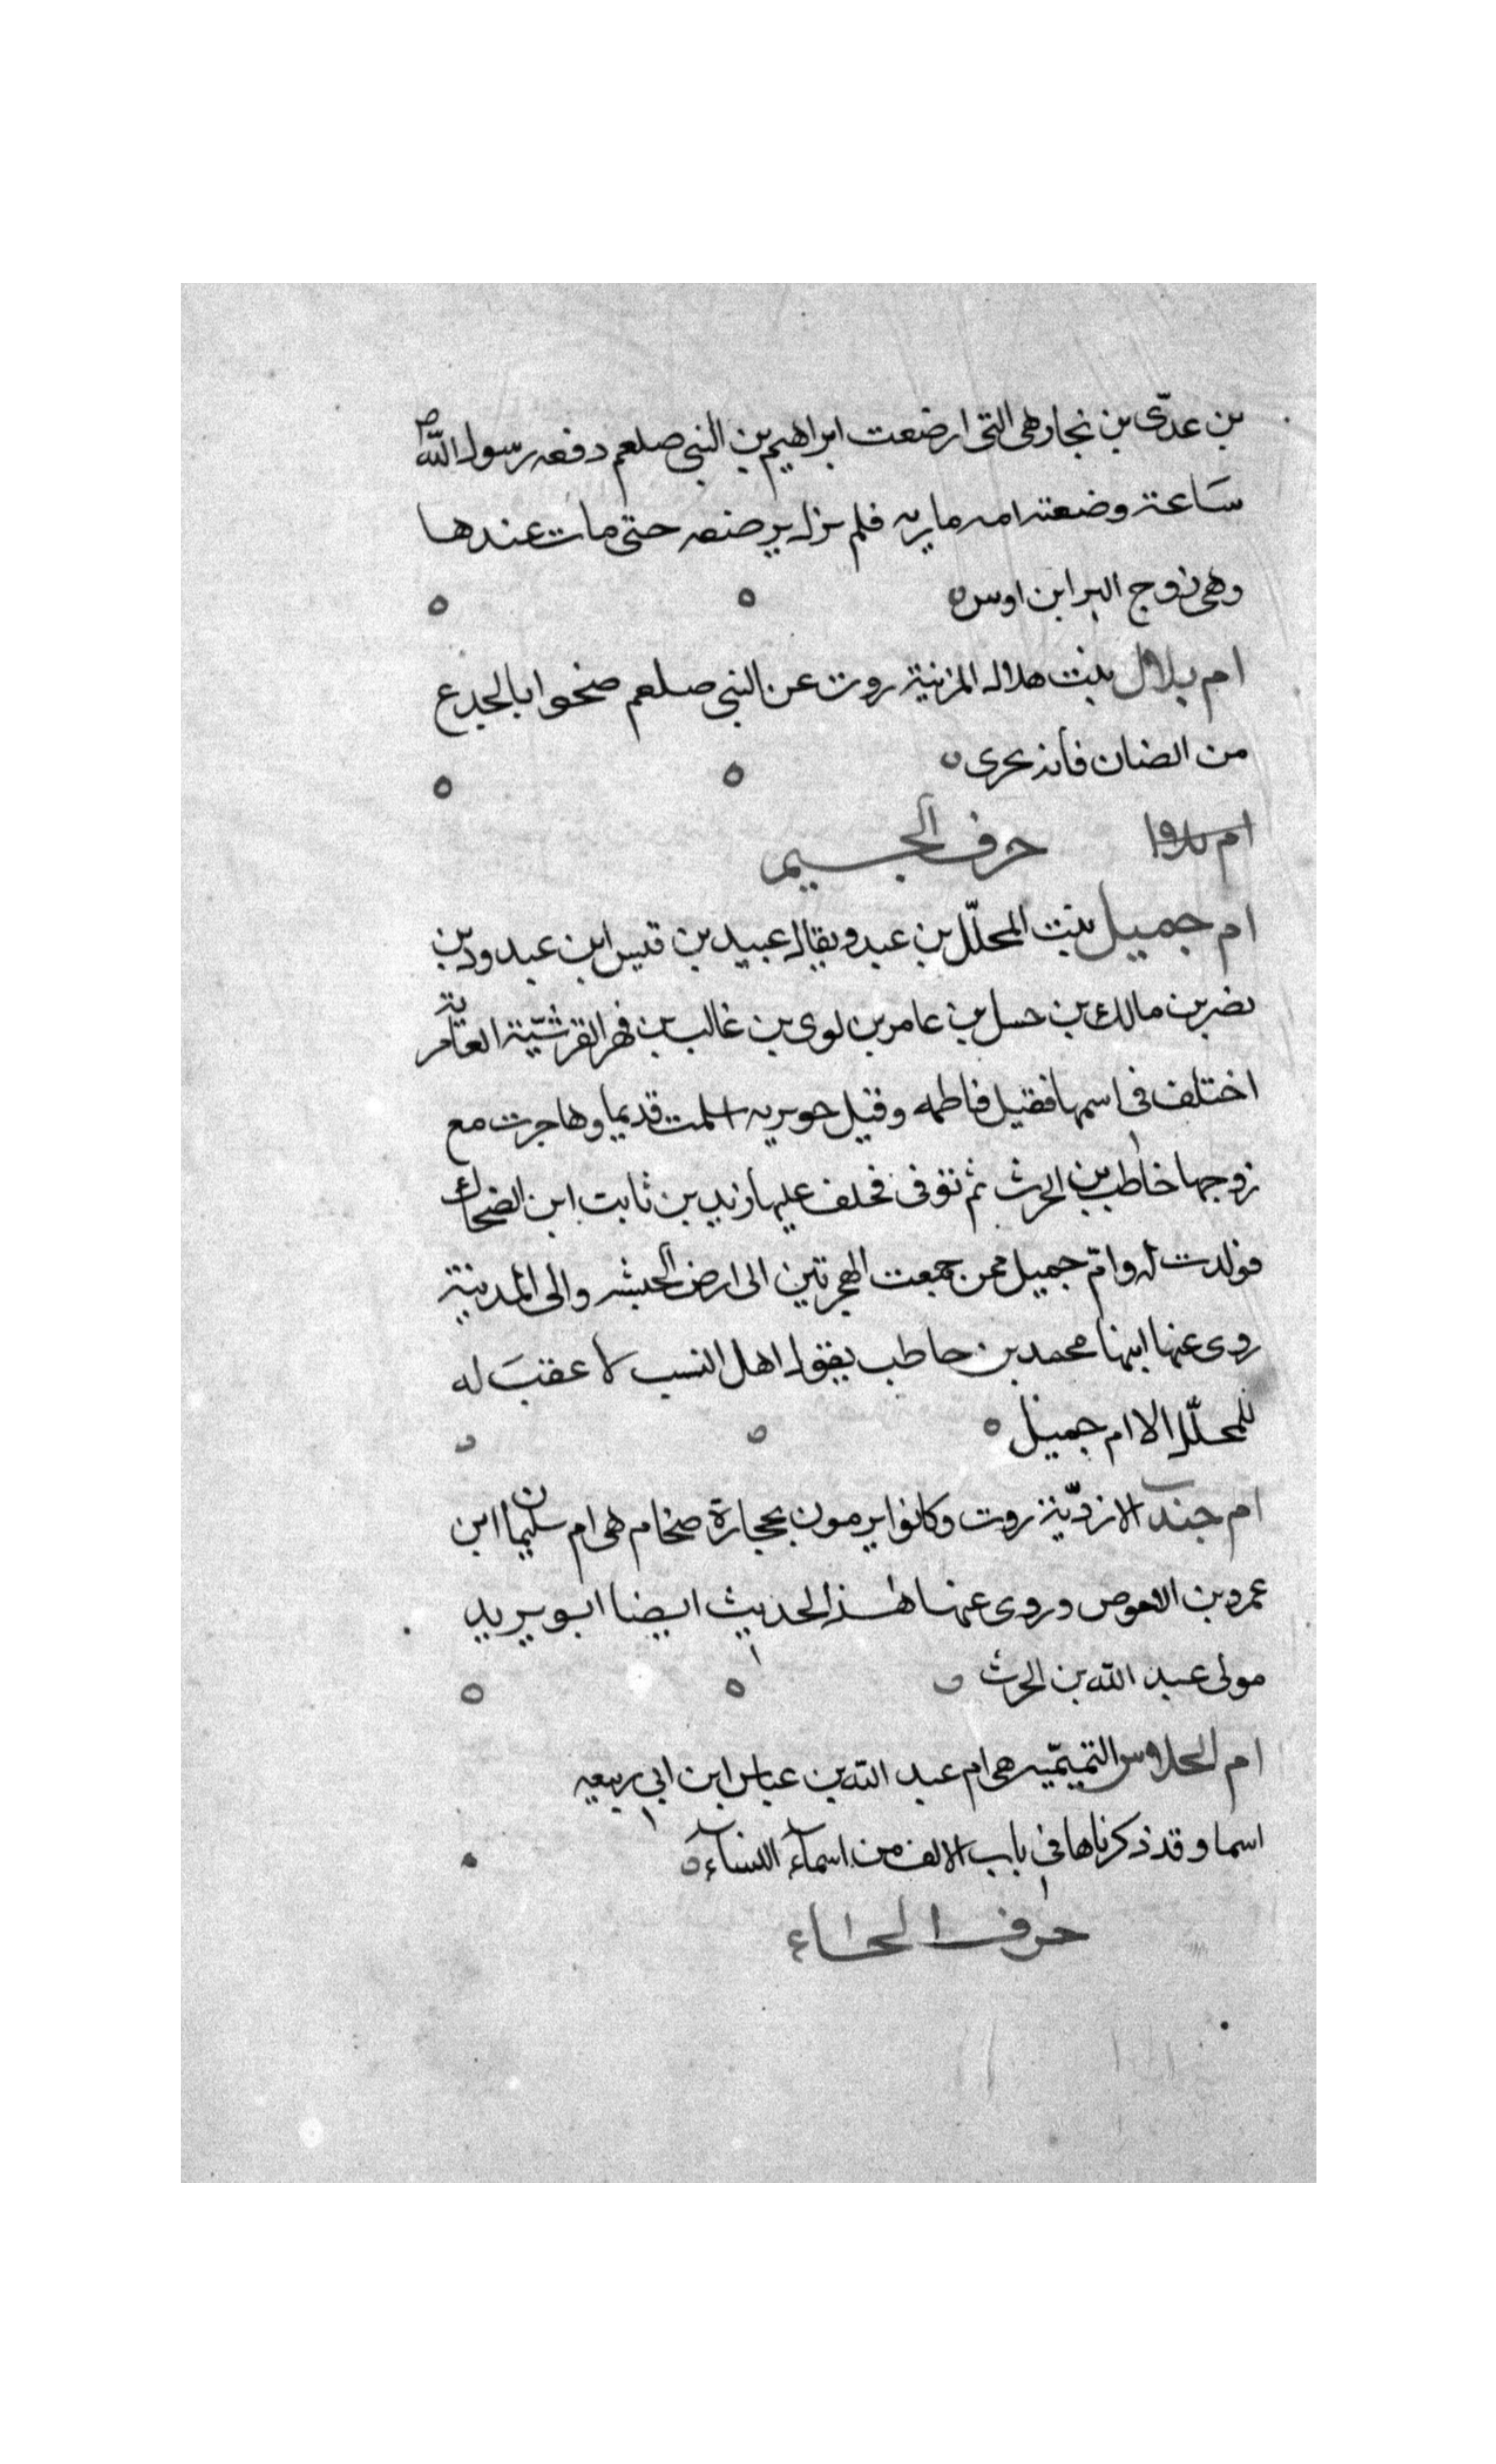 بن عدّى بن نجار وهى التى ارضعت ابراهيم بن النبى صلعم دفعه رسول اللّه ص
سَاعة وضعته امه ماريه فلم يزل يرضعه حتى مات عندها
وهى زوج البرا بن اوس
ام بلال بنت هلال المزنية روت عن النبى صلعم ضحوا بالجدع
من الضان فأنه يحرى
حرف الجسيم
ام جميل بنت المحلّل بن عبد ويقال عبيد بن قيس ابن عبد ود بن
نضر بن مالك بن حسل بن عامر بن لوى بن غالب بن فهر القرشيّة العامرية
اختلف فى اسمها فقيل فاطمه وقيل جويريه اسلمت قديما وهاجرت مع
زوجها خاطب بن الحرث ثم توفى فخلف عليها زيد بن ثابت ابن الضحاك
فولدت له وامّ جميل ممن جمعت الهجرتين الى ارض الحبشه والى المدينة
روى عنها ابنها محمد بن حاطب يقول اهل النسب لا عقبَ له
للمحلّل الا ام جميل
ام جندب الازديّة روت وكانوا يرمون بحجارة ضخام هى ام سليمان ابن
عمرو بن الاحوص وروى عنها هذا الحديث ايضا ابو يريد
مولى عبد اللّه بن الحرث
ام الحلاس التميميّه هى ام عبد اللّه بن عباس ابن ابى ربيعه
اسما وقد ذكرناها فى باب الالف من اسماء النساء
حرف الحاء